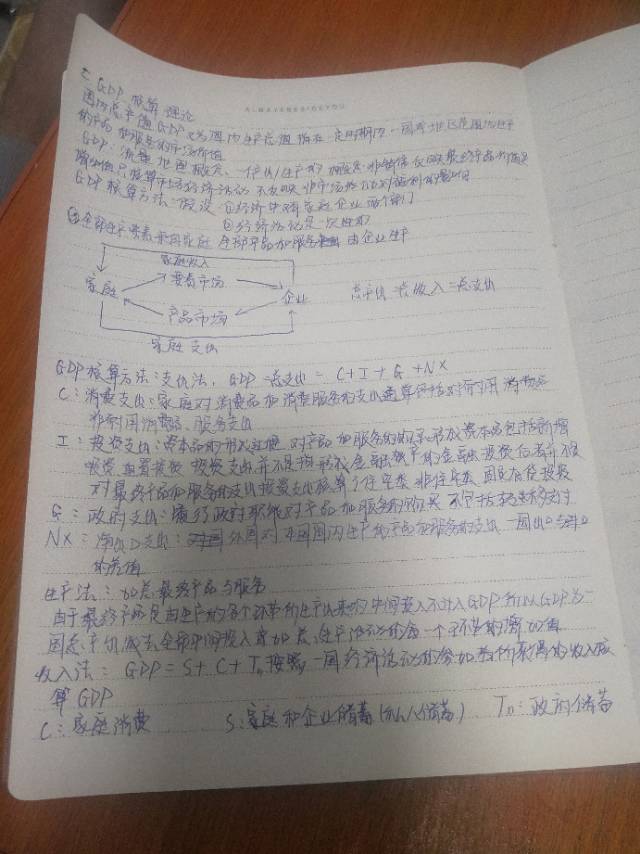 GDP 核算理论
国内总产值GDP又名国内生产总值 指在一定时期内 一国或地区范围内生产
的产品和服务的市场价值
GDP: 流量 地图概念
GDP核算方法:假设 ①经济中只有家庭 企业 两个部门
②经济活动是一次性的
全部生产要素 家庭 全部产品和服务 由企业生产
家庭收入
要素市场
家庭
企业
总产值 总收入=总支出
产品市场
家庭支出
GDP核算方法:支出法, GDP=总支出= C+I+G+NX
C:消费支出:家庭对消费品和消费服务的支出 包括对耐用消费品
非耐用消费品、服务支出
I:投资支出:资本品的形成 对产品和服务的 形成资本品包括新增
投资 重置投资 投资支出并不是指形成金融资产的金融投资 后者并不是
对最终产品和服务的支出 投资支出 住宅类 非住宅类 固定存货投资
G:政府支出:履行政府职能对产品和服务的购买 不包括转移支付
NX:净出口支出: 外国对本国国内生产的产品和服务的支出 一国出口与进口
的差值
生产法:加总最终产品与服务
由于最终产品是由生产的各个环节所生产出来的 中间投入不计入GDP 所以GDP为一
国总产值减去全部中间投入或加总生产活动的每一个环节的增加值
收入法: GDP=S+C+Tn 按照一国经济活动的参加者所获得的收入核
算GDP
C:家庭消费 S:家庭和企业储蓄(私人储蓄) Tn:政府储蓄